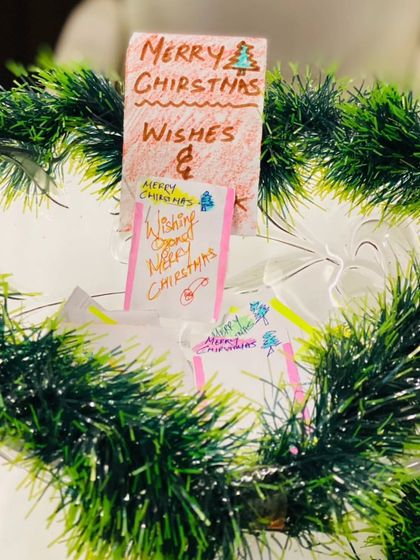 MERRY
CHIRSTMAS
WISHES
&
MERRY
CHIRSTMAS
Wishing
MERRY
CHIRSTMAS
MERRY
MERRY
CHIRSTMAS